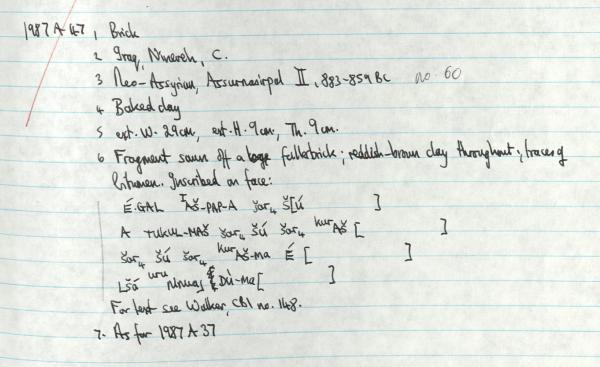 1987 A 47 1 Brick
2 Iraq, Nineveh, C.
3 Neo-Assyrian, Assurnasirpal II, 883-859 BC no. 60
4 Baked clay
5 ext. W. 29cm, ext. H. 9cm, Th. 9cm.
6 Fragment sawn off a large fuller brick; reddish-brown clay throughout; traces of
bitumen. Inscribed on face:
É.GAL ᴵAŠ-PAP-A šar₄ Š[Ú ]
A TUKUL-MAŠ šar₄ ŠÚ šar₄ ᵏᵘʳAŠ [ ]
šar₄ ŠÚ šar₄ ᵏᵘʳAŠ-ma É [ ]
šá ᵘʳᵘ DÙ-ma [ ]
For text see Walker, CBI no. 148.
7. As for 1987 A 37